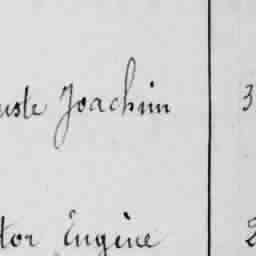 uste Joachim 3
tor Eugène 2